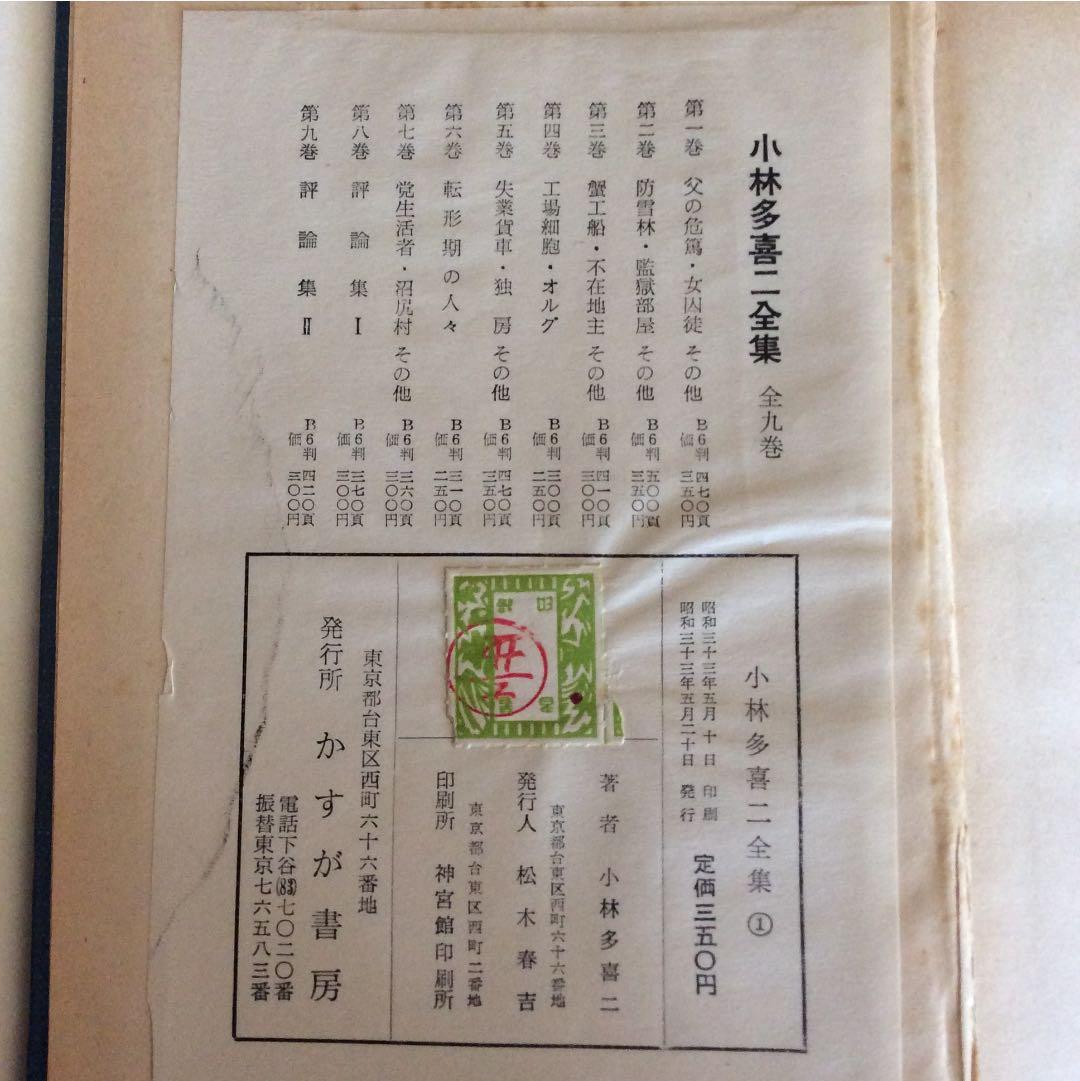 小林多喜二全集 全九巻
第一巻 父の危篤・女囚徒 その他 B6判 四七〇頁 価 三五〇円
第二巻 防雪林・監獄部屋 その他 B6判 五〇〇頁 価 三五〇円
第三巻 蟹工船・不在地主 その他 B6判 四一〇頁 価 三〇〇円
第四巻 工場細胞・オルグ B6判 三〇〇頁 価 二五〇円
第五巻 失業貨車・独房 その他 B6判 四七〇頁 価 三五〇円
第六巻 転形期の人々 B6判 三一〇頁 価 二五〇円
第七巻 党生活者・沼尻村 その他 B6判 三六〇頁 価 三〇〇円
第八巻 評論集 I B6判 三七〇頁 価 三〇〇円
第九巻 評論集 II B6判 四二〇頁 価 三〇〇円
小林多喜二全集 ①
昭和三十三年五月十日 印刷
昭和三十三年五月二十日 発行
定価三五〇円
著者 小林多喜二
東京都台東区西町六十六番地
発行人 松木春吉
東京都台東区西町二番地
印刷所 神宮館印刷所
東京都台東区西町六十六番地
発行所 かすが書房
電話下谷(83)七〇二〇番
振替東京七六五八三番